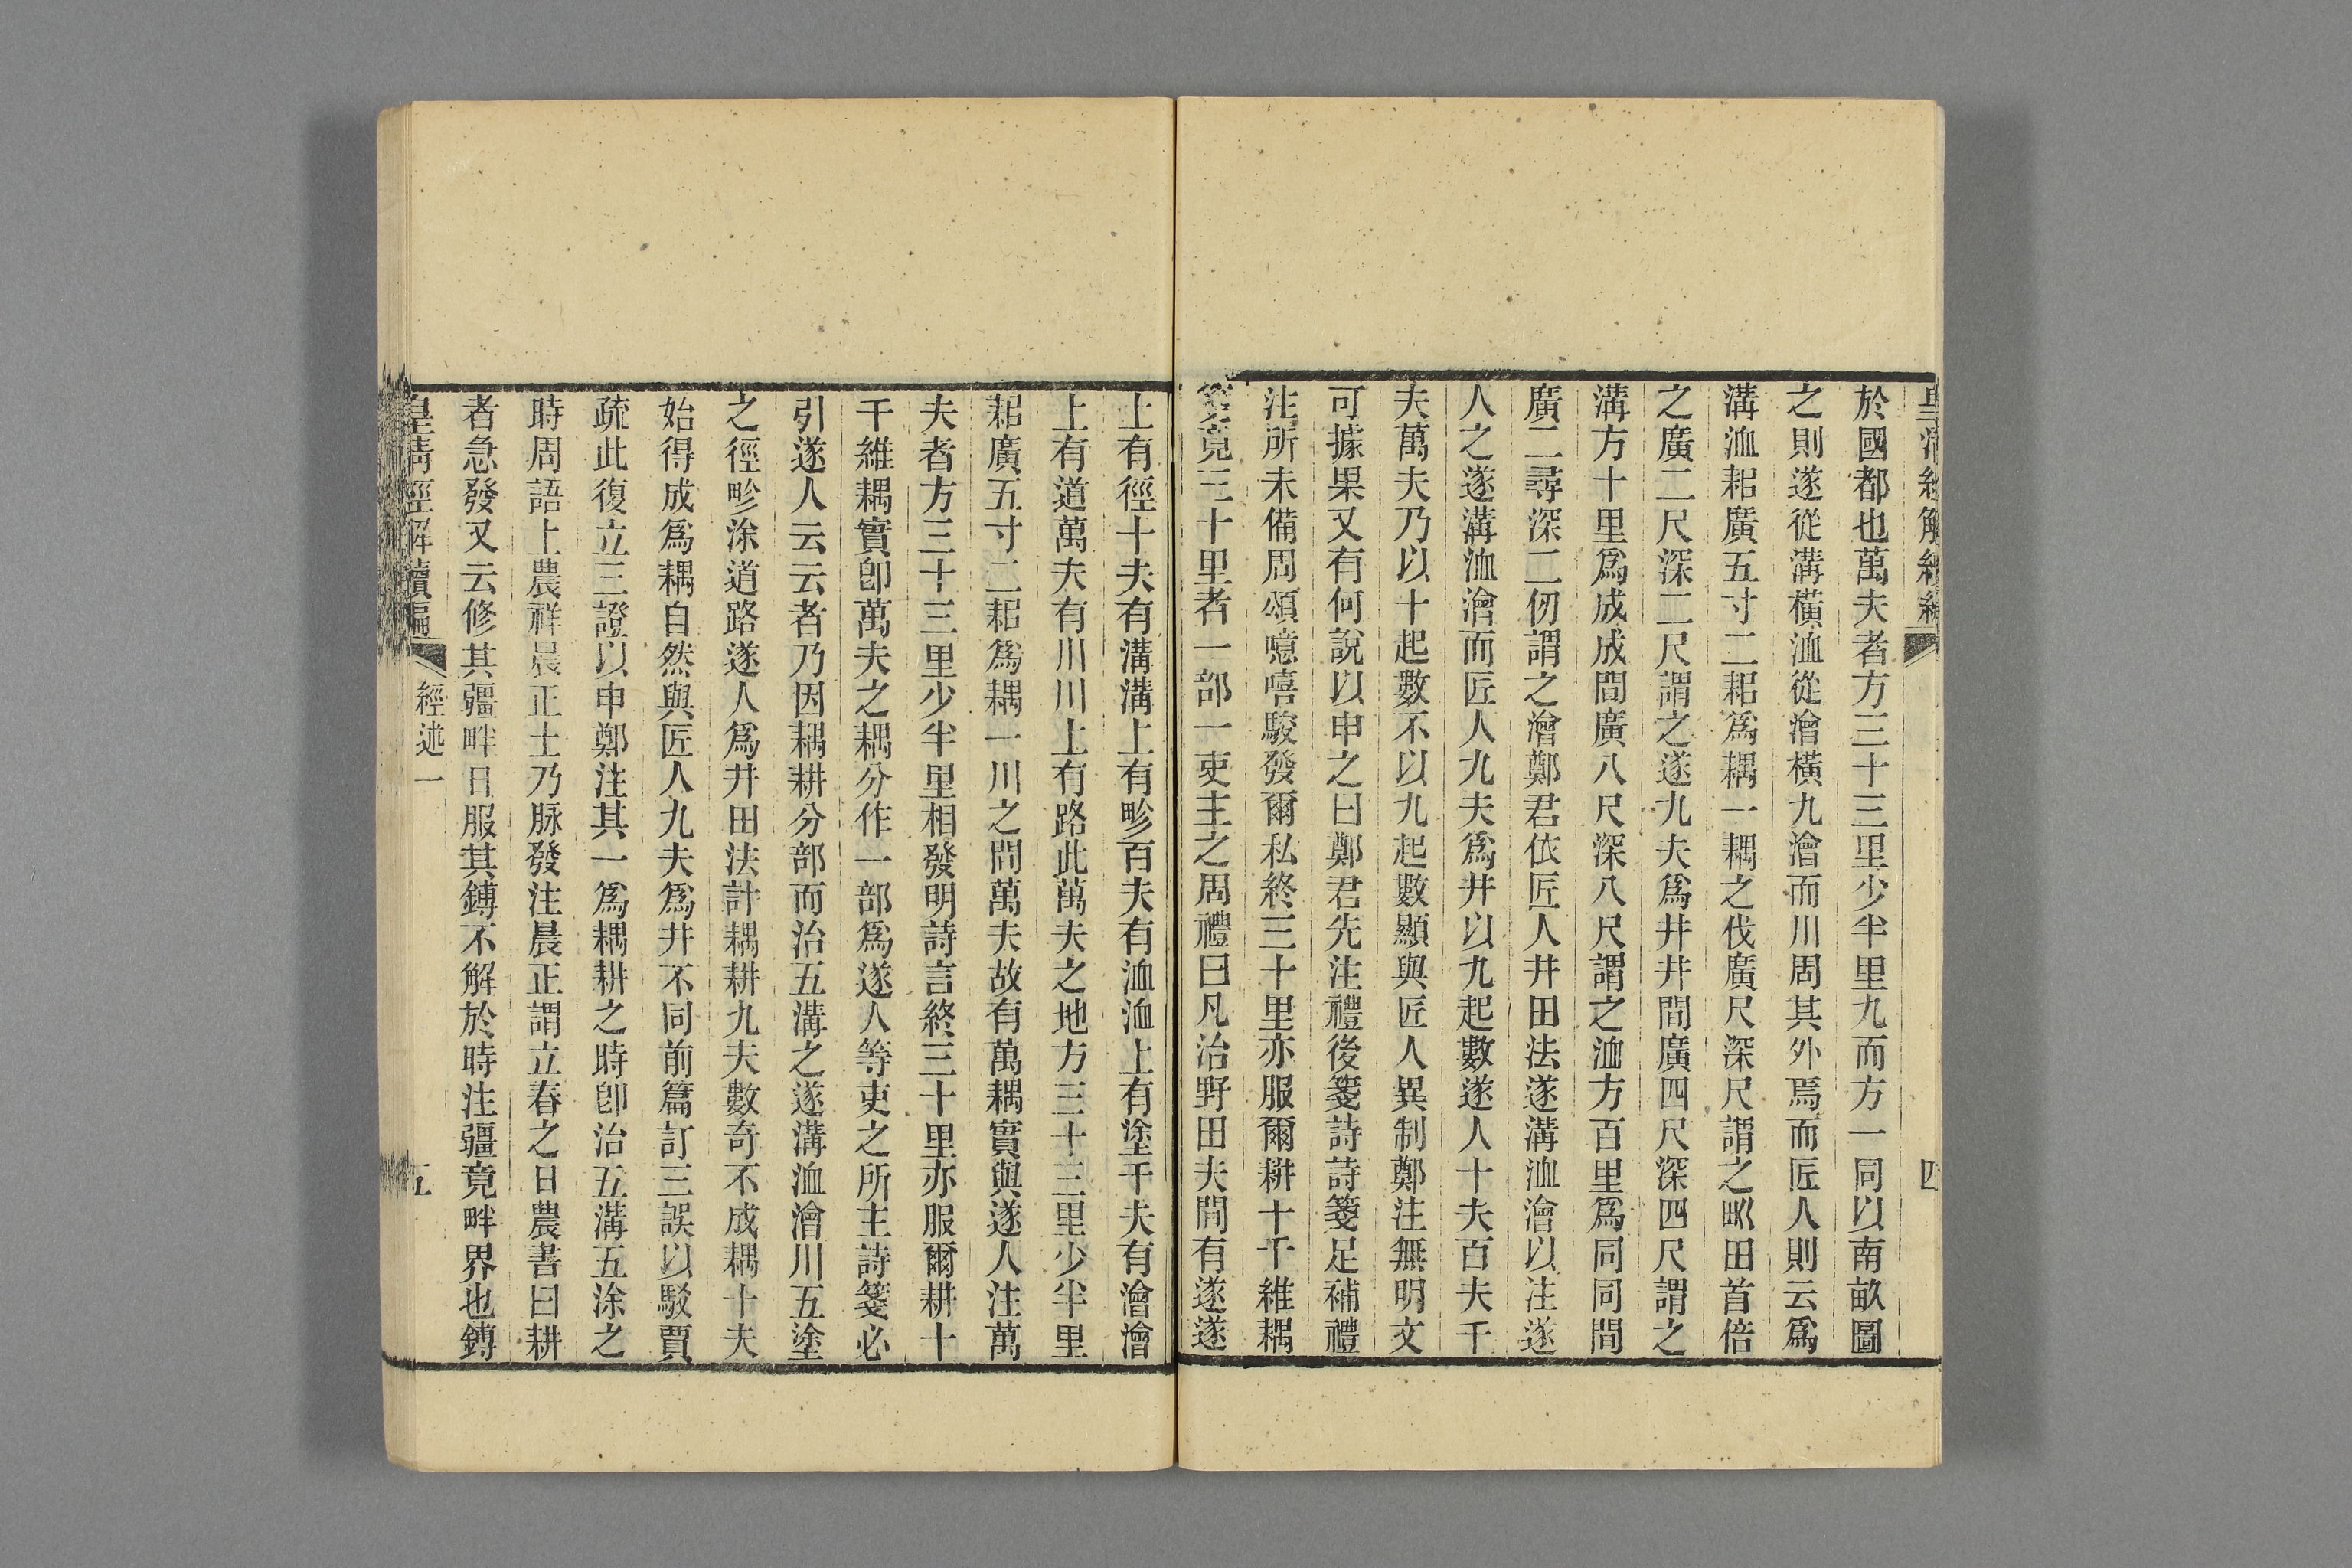 於國都也萬夫者方三十三里少半里九而方一同以南畝圖
之則遂從溝橫洫從澮橫九澮而川周其外焉而匠人則云爲
溝洫耜廣五寸二耜爲耦一耦之伐廣尺深尺謂之𤰕田首倍
之廣二尺深二尺謂之遂九夫爲井井間廣四尺深四尺謂之
溝方十里爲成成間廣八尺深八尺謂之洫方百里爲同同間
廣二尋深二仞謂之澮鄭君依匠人井田法遂溝洫澮以注遂
人之遂溝洫澮而匠人九夫爲井以九起數遂人十夫百夫千
夫萬夫乃以十起數不以九起數顯與匠人異制鄭注無明文
可據果又有何說以申之曰鄭君先注禮後箋詩詩箋足補禮
注所未備周頌噫嘻駿發爾私終三十里亦服爾耕十千維耦
箋竟三十里者一部一吏主之周禮曰凡治野田夫間有遂遂
上有徑十夫有溝溝上有畛百夫有洫洫上有塗千夫有澮澮
上有道萬夫有川川上有路此萬夫之地方三十三里少半里
耜廣五寸二耜爲耦一川之間萬夫故有萬耦實與遂人注萬
夫者方三十三里少半里相發明詩言終三十里亦服爾耕十
千維耦實卽萬夫之耦分作一部爲遂人等吏之所主詩箋必
引遂人云云者乃因耦耕分部而治五溝之遂溝洫澮川五塗
之徑畛涂道路遂人爲井田法計耦耕九夫數奇不成耦十夫
始得成爲耦自然與匠人九夫爲井不同前篇訂三誤以駁賈
疏此復立三證以申鄭注其一爲耦耕之時卽治五溝五涂之
時周語上農祥晨正土乃脉發注晨正謂立春之日農書曰耕
者急發又云修其疆畔日服其鎛不解於時注疆竟畔界也鎛
皇清經解續編 經述一 五